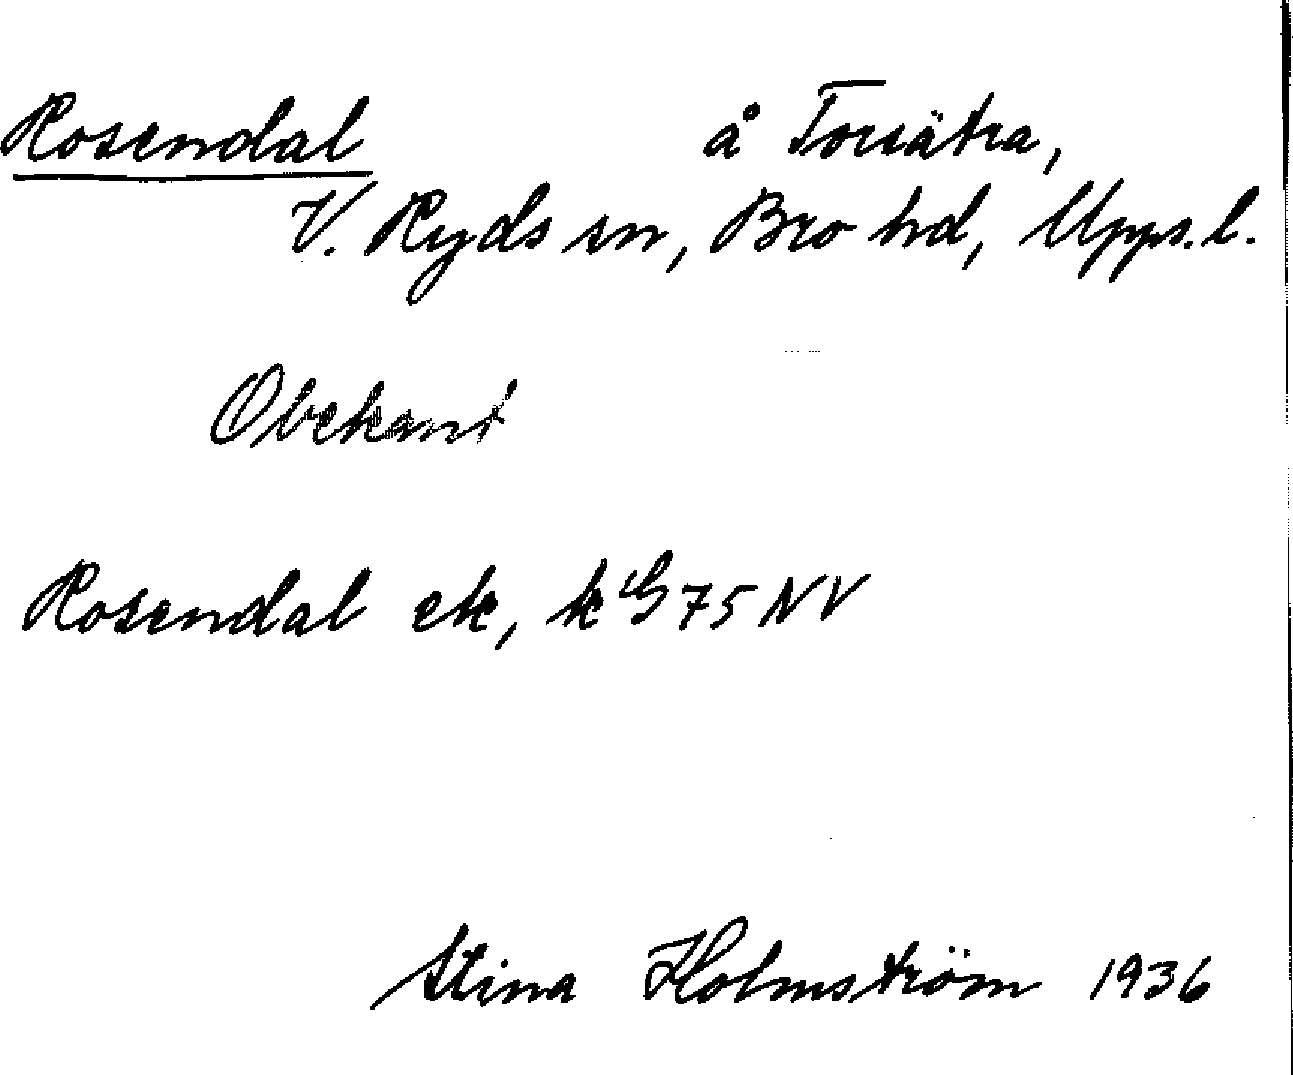 Rosendal å Torsätra,
V. Ryds sn, Bro hd, Upps. l.
Obekant
Rosendal ek, k G 75 NV
Stina Holmström 1936